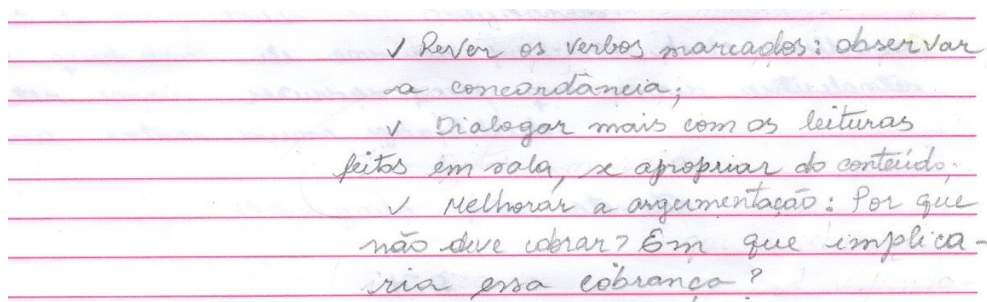 ✓ Rever os verbos marcados: observar
a concordância;
✓ Dialogar mais com as leituras
feitas em sala, se apropriar do conteúdo.
✓ Melhorar a argumentação: Por que
não deve cobrar? Em que implica-
ria essa cobrança?